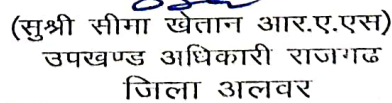 (सुश्री सीमा खेतान आर.ए.एस)
उपखण्ड अधिकारी राजगढ
जिला अलवर